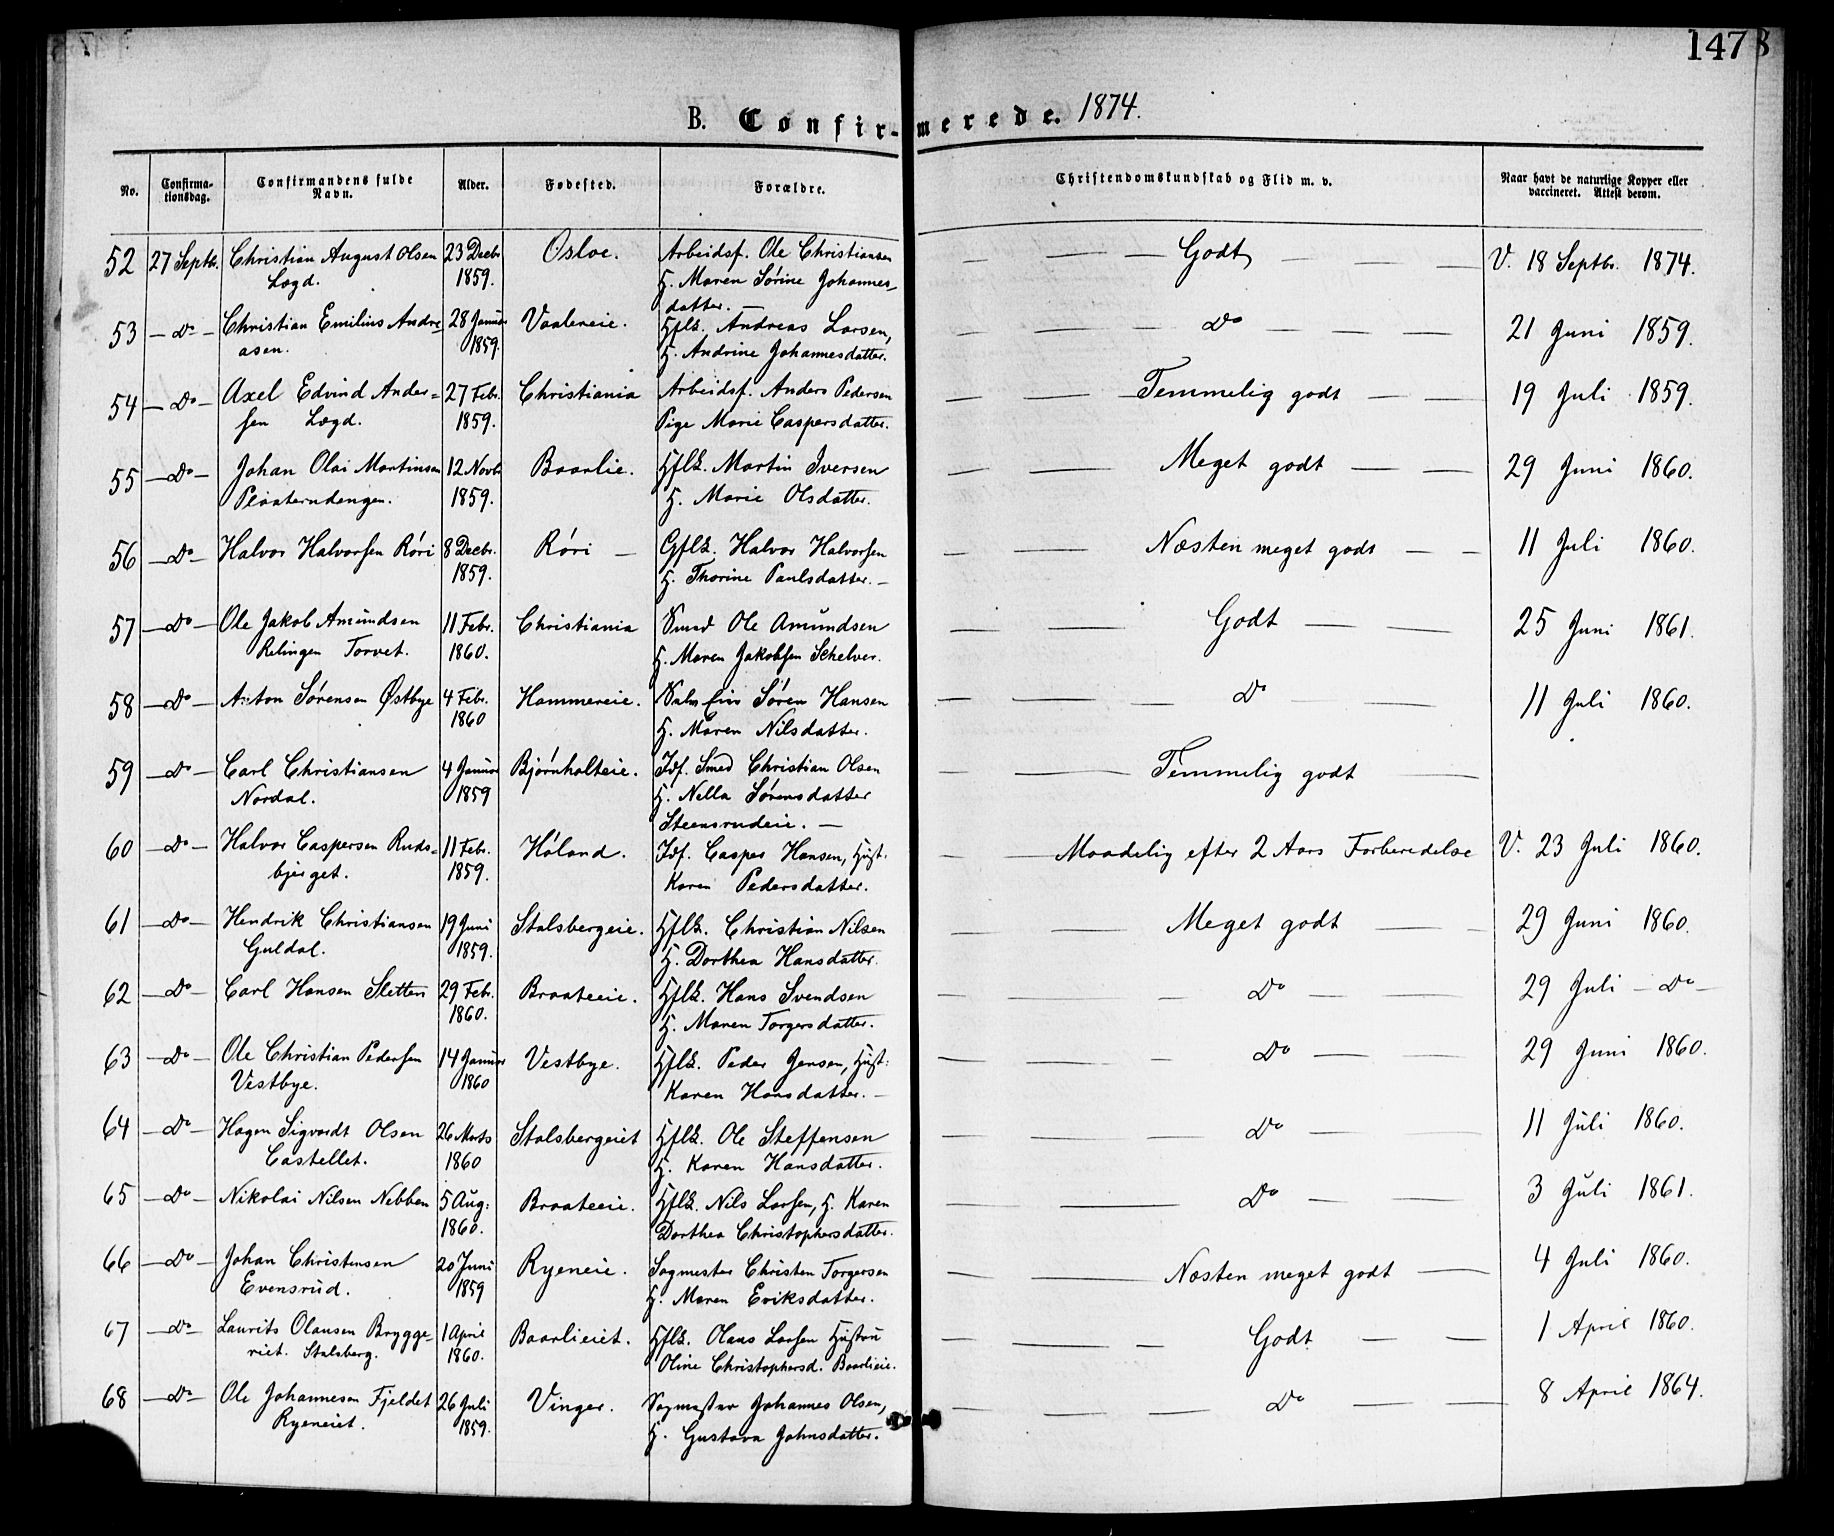 147
B. Confirmerede. 1874.
No. Confirmationsdag. Confirmandens fulde Navn. Alder. Fødested. Forældre. Christendomskundskab og Flid m. v. Naar havt de naturlige Kopper eller vaccineret. Attest derom.
52 27 Septbr. Christian August Olsen 23 Decbr. Osloe. Arbeidsf. Ole Christiansen — — — Godt — — — V. 18 Septbr. 1874.
Løgd. 1859. H. Maren Sørine Johannes-
datter. —
53 — Do — Christian Emilius Andre- 28 Januar Vaalereie. Hflk. Andreas Larsen, — — — Do — — — 21 Juni 1859.
asen. 1859. H. Andrine Johannesdatter.
54 — Do — Axel Edvind Ander- 27 Febr. Christiania Arbeidsf. Anders Pedersen — — — Temmelig godt — — 19 Juli 1859.
sen Lægd. 1859. Pige Marie Caspersdatter.
55 — Do — Johan Olai Martinsen 12 Novbr. Baarlie. Hflk. Martin Iversen — — Meget godt — — 29 Juni 1860.
Plaaterudengen. 1859. H. Marie Olsdatter.
56 — Do — Halvor Halvorsen Róri 8 Decbr. Róri — Gflk. Halvor Halvorsen — — Næsten meget godt — — 11 Juli 1860.
1859. H. Thorine Paulsdatter. —
57 — Do — Ole Jakob Amundsen 11 Febr. Christiania Smed Ole Amundsen — — Godt — — 25 Juni 1861.
Relingen Torvet. 1860. H. Maren Jakobsen Schelver.
58 — Do — Anton Sørensen Østbye 4 Febr. Hammereie. Søren Hansen — — Do — — 11 Juli 1860.
1860 H. Maren Nilsdatter.
59 — Do — Carl Christiansen 4 Januar Bjørnholteie. Idf. Smed Christian Olsen — — Temmelig godt —
Nordal. 1859 H. Nella Sørensdatter
Steensrudeie. —
60 — Do — Halvor Caspersen Ruds- 11 Febr. Høland. Idf. Casper Hansen, Hust. — — Maadelig efter 2 Aars Forberedelse V. 23 Juli 1860.
bjerget. 1859. Karen Pedersdatter.
61 — Do — Hendrik Christiansen 19 Juni Stalsbergeie. Hflk. Christian Nilsen — — Meget godt — — 29 Juni 1860.
Guldal. 1859. H. Dorthea Hansdatter.
62 — Do — Carl Hansen Sletten 29 Febr. Braateeie. Hflk. Hans Svendsen — — — Do — — 29 Juli — Do —
1860. H. Maren Torgersdatter.
63 — Do — Ole Christian Pedersen 14 Januar Vestbye. Hflk. Peder Jensen, Hust: — — — Do — — 29 Juni 1860.
Vestbye. 1860 Karen Hansdatter. —
64 — Do — Hagen Sigvardt Olsen 26 Marts Stalsbergeiet Hflk. Ole Steffensen — — — Do — — 11 Juli 1860.
Castellet. 1860 H. Karen Hansdatter.
65 — Do — Nikolai Nilsen Nebben 5 Aug: Braateeie. Hflk. Nils Larsen, H. Karen — — Do — — 3 Juli 1861.
1860. Dorthea Christophersdatter.
66 — Do — Johan Christensen 20 Juni Ryeneie. Sagmester Christen Torgersen — — Næsten meget godt — 4 Juli 1860.
Evensrud. 1859 H. Maren Eriksdatter.
67 — Do — Laurits Olausen Brygge- 1 April Baarlieiet. Hflk. Olaus Larsen Hustru — — — Godt — — 1 April 1860.
riet. Stalsberg. 1860. Oline Christophersd. Baarlieie.
68 — Do — Ole Johannesen Fjeldet 26 Juli Vinger. Sagmester Johannes Olsen, — — — — Do — — 8 April 1864.
Ryeneiet. 1859. H. Gustava Johnsdatter.